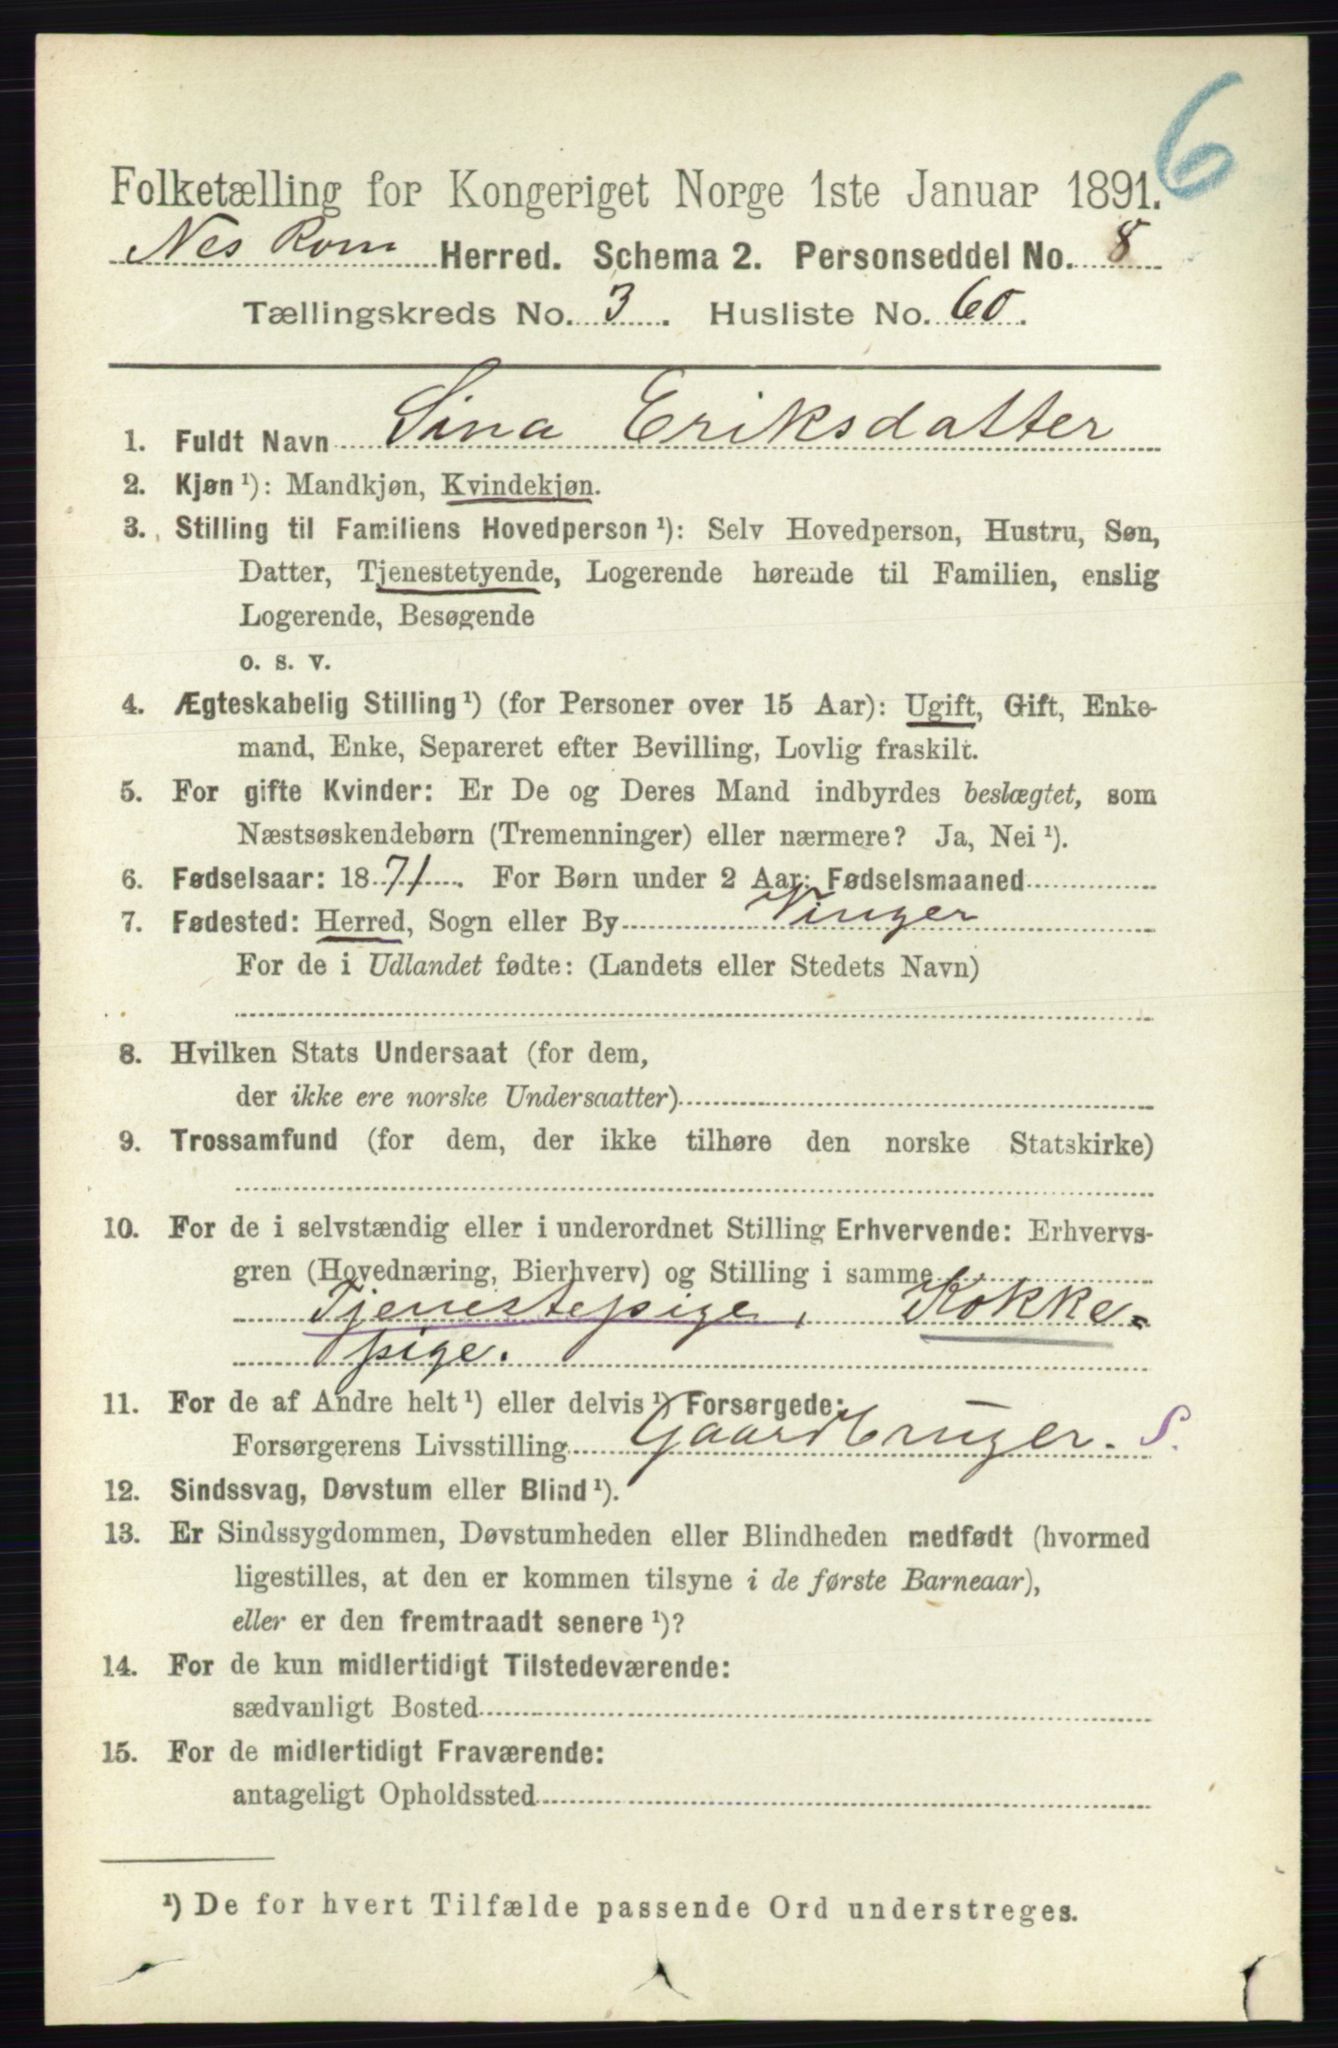 6
Folketælling for Kongeriget Norge 1ste Januar 1891.
Nes Rom Herred. Schema 2. Personseddel No. 8
Tællingskreds No. 3. Husliste No. 60.
1. Fuldt Navn Sina Eriksdatter
2. Kjøn ¹): Mandkjøn, Kvindekjøn.
3. Stilling til Familiens Hovedperson ¹): Selv Hovedperson, Hustru, Søn,
Datter, Tjenestetyende, Logerende hørende til Familien, enslig
Logerende, Besøgende
o. s. v.
4. Ægteskabelig Stilling ¹) (for Personer over 15 Aar): Ugift, Gift, Enke-
mand, Enke, Separeret efter Bevilling, Lovlig fraskilt.
5. For gifte Kvinder: Er De og Deres Mand indbyrdes beslægtet, som
Næstsøskendebørn (Tremenninger) eller nærmere? Ja, Nei ¹).
6. Fødselsaar: 1871. For Børn under 2 Aar: Fødselsmaaned
7. Fødested: Herred, Sogn eller By Vinger
For de i Udlandet fødte: (Landets eller Stedets Navn)
8. Hvilken Stats Undersaat (for dem,
der ikke ere norske Undersaatter)
9. Trossamfund (for dem, der ikke tilhøre den norske Statskirke)
10. For de i selvstændig eller i underordnet Stilling Erhvervende: Erhvervs-
gren (Hovednæring, Bierhverv) og Stilling i samme
Tjenestepige, Kokke-
pige.
11. For de af Andre helt ¹) eller delvis ¹) Forsørgede:
Forsørgerens Livsstilling Gaardbruger. S.
12. Sindssvag, Døvstum eller Blind ¹).
13. Er Sindssygdommen, Døvstumheden eller Blindheden medfødt (hvormed
ligestilles, at den er kommen tilsyne i de første Barneaar),
eller er den fremtraadt senere ¹)?
14. For de kun midlertidigt Tilstedeværende:
sædvanligt Bosted
15. For de midlertidigt Fraværende:
antageligt Opholdssted
¹) De for hvert Tilfælde passende Ord understreges.